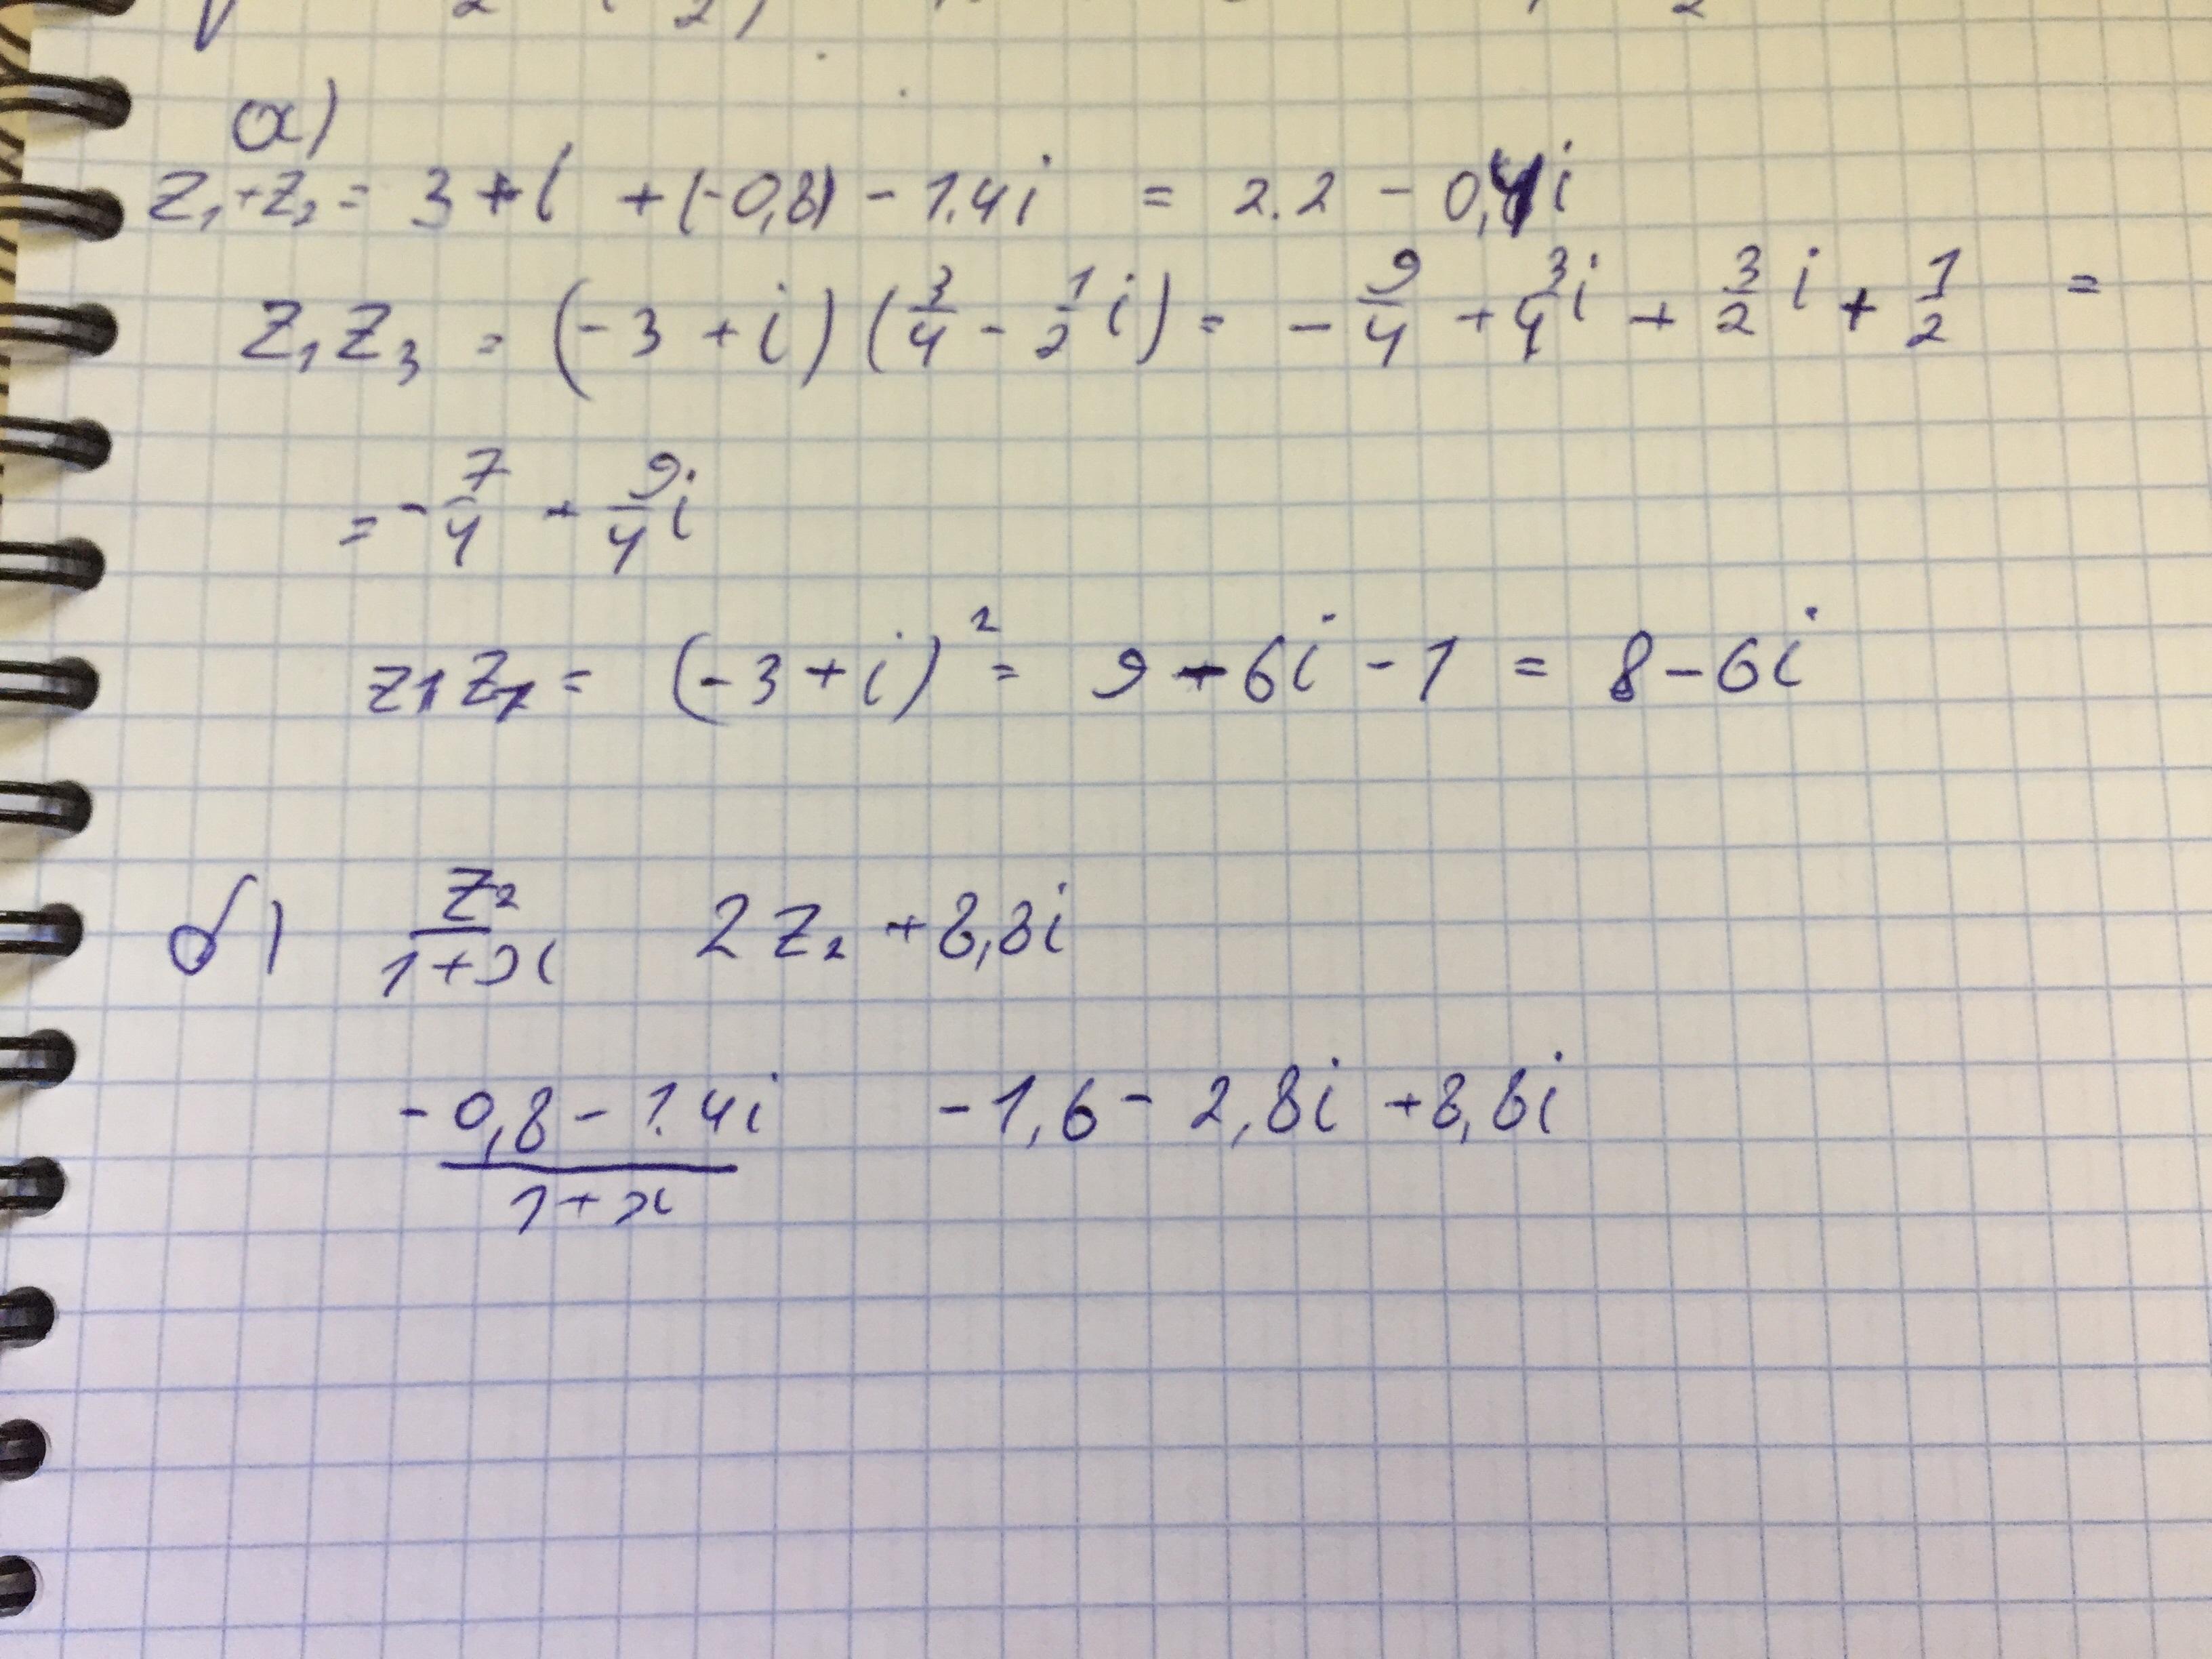 а)
z₁+z₂ = 3 + i + (-0,8) - 1.4i = 2.2 - 0,4i
z₁z₃ = (-3 + i)(3/4 - 1/2 i) = - 9/4 + 3/4 i + 3/2 i + 1/2 =
= - 7/4 + 9/4 i
z₁z₁ = (-3 + i)² = 9 - 6i - 1 = 8 - 6i
б) z₂/(1+x) 2z₂ + 8,8i
(-0,8 - 1.4i)/(1+x) -1,6 - 2,8i + 8,8i